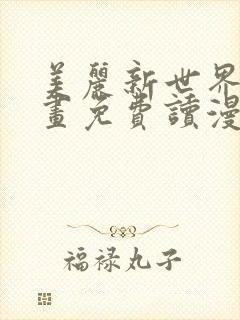 美麗新世界
畫免費讀漫
福禄丸子